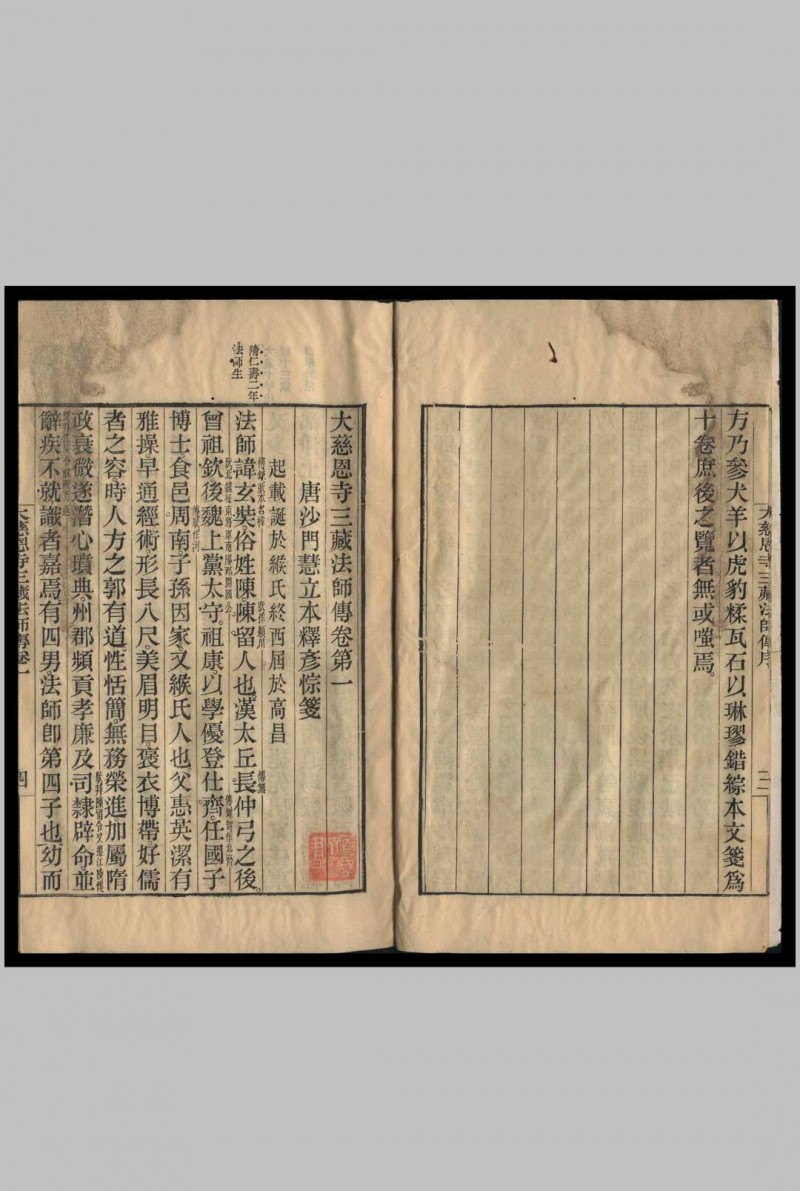 方乃參犬羊以虎豹糅瓦石以琳璆錯綜本文箋爲
十卷庶後之覽者無或嗤焉
大慈恩寺三藏法師傳序
大慈恩寺三藏法師傳卷第一
唐沙門慧立本釋彥悰箋
起載誕於緱氏終西屆於高昌
隋仁壽二年
法師生
法師諱玄奘俗姓陳陳留人也漢太丘長仲弓之後
曾祖欽後魏上黨太守祖康以學優登仕齊任國子
博士食邑周南子孫因家又緱氏人也父惠英潔有
雅操早通經術形長八尺美眉明目褒衣博帶好儒
者之容時人方之郭有道性恬簡無務榮進加屬隋
政衰微遂潛心墳典州郡頻貢孝廉及司隸辟命並
辭疾不就識者嘉焉有四男法師卽第四子也幼而
大慈恩寺三藏法師傳卷一
四